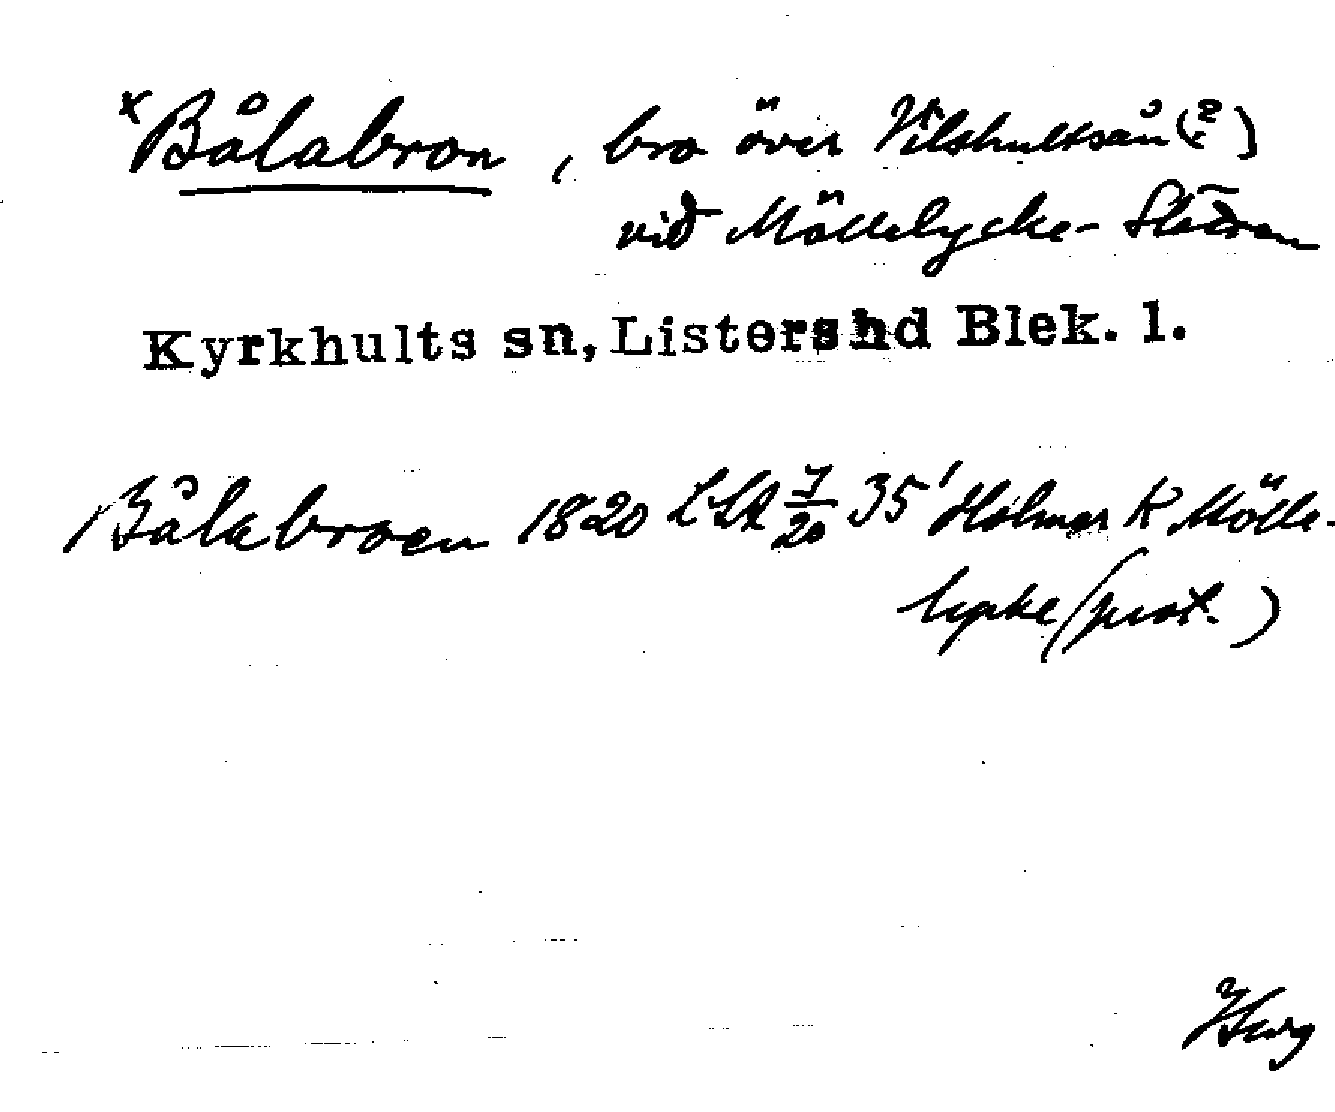 x Bålabron, bro över Vilshultsån (?)
vid Möllelycke-
Kyrkhults sn, Listershd Blek. l.
Bålabroen 1820 LSA 7/20 35' Holmar K Mölle-
lycke (prot.)